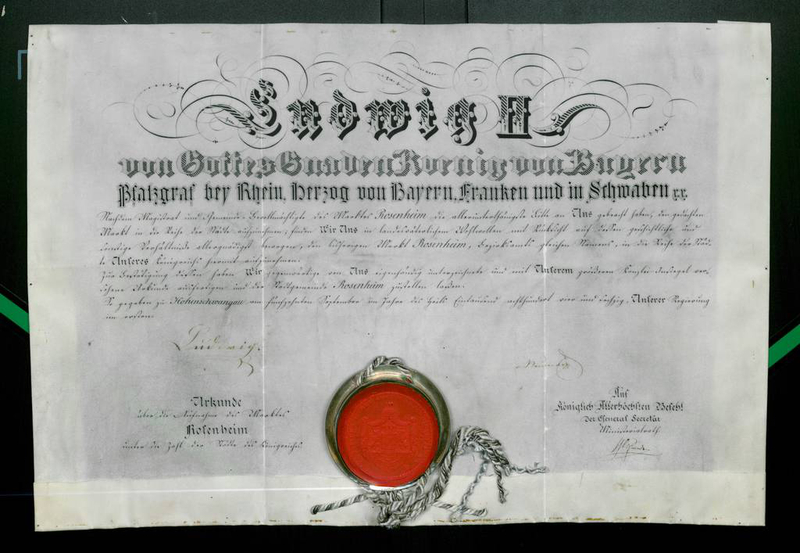 Ludwig II.
von Gottes Gnaden Koenig von Bayern
Pfalzgraf bey Rhein, Herzog von Bayern, Franken und in Schwaben xx.
Nachdem Magistrat und Gemeinde Bevollmächtigte des Marktes Rosenheim die allerunterthänigste Bitte an Uns gebracht haben, den gedachten
Markt in die Reihe der Städte aufzunehmen, finden Wir Uns in landesväterlichem Wohlwollen mit Rücksicht auf dessen geschichtliche und
sonstige Verhältnisse allergnädigst bewogen, den bisherigen Markt Rosenheim, Bezirksamts gleichen Namens, in die Reihe der Städ-
te Unseres Königreichs hiermit aufzunehmen.
Zur Bestätigung dessen haben Wir gegenwärtige von Uns eigenhändig unterzeichnete und mit Unserem größeren Kanzlei Insiegel ver-
sehene Urkunde ausfertigen und der Stadtgemeinde Rosenheim zustellen lassen.
So gegeben zu Hohenschwangau am fünfzehnten September im Jahre des Heils Eintausend achthundert vier und sechzig, Unserer Regierung
im ersten.
Ludwig.
Urkunde
über die Aufnahme des Marktes
Rosenheim
unter die Zahl der Städte des Königreichs
Auf
Königlich Allerhöchsten Befehl
der General Secretär
Ministerialrath